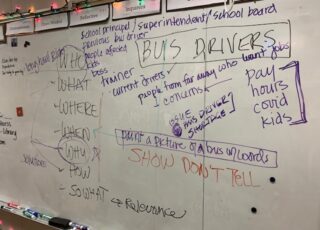 Inquirer
school principal/superintendent/school board
previous bus driver
people affected
kids
boss
BUS DRIVERS
trainer
current drivers
people from far away who want jobs
concerns
pay
hours
covid
kids
WHO
WHAT
WHERE
WHEN
WHY
HOW
SO WHAT Relevance
solutions
ISSUE
BUS DRIVER
SHORTAGE
paint a picture of a bus in words
SHOW DON'T TELL
Library